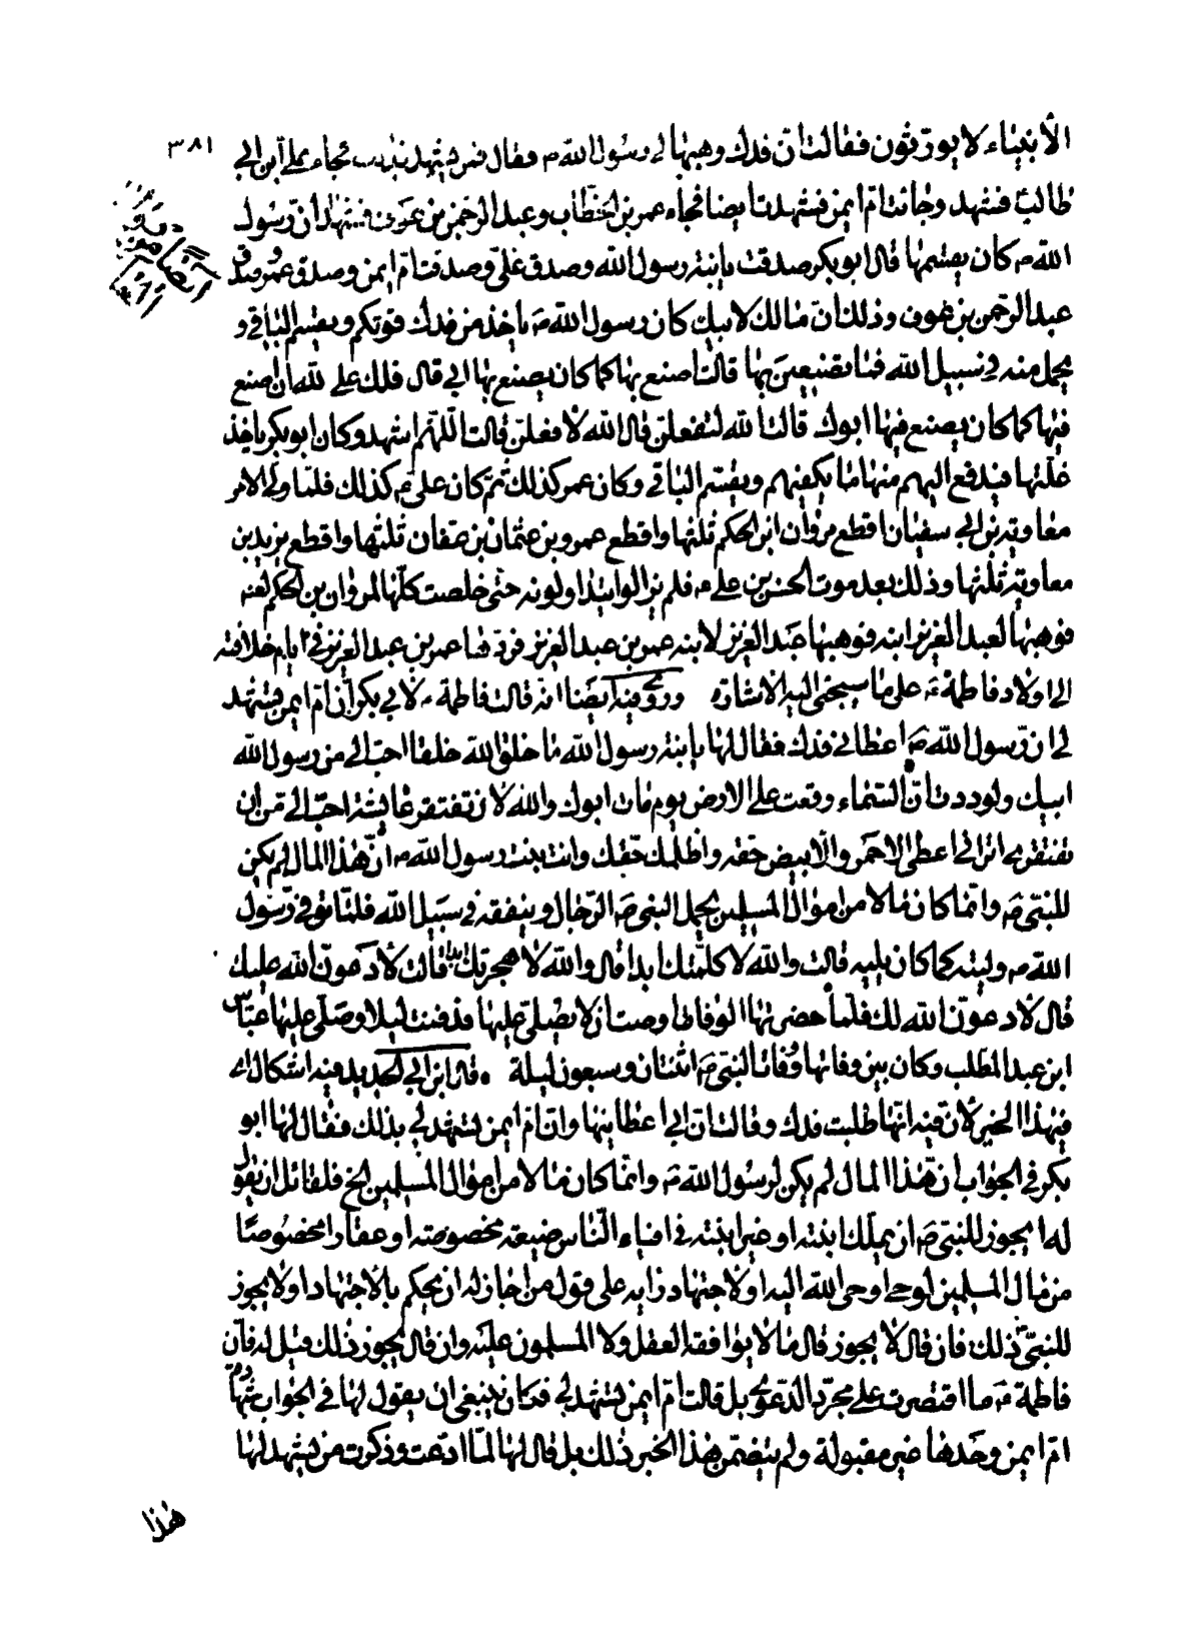 ٣٨١
الأنبياء لا يورّثون فقالت انّ فدك وهبها لي رسول الله ص فقال فمن يشهد بذلك فجاء علي ابن ابي
طالب فشهد وجائت امّ ايمن فشهدت ايضا فجاء عمر بن الخطّاب وعبد الرحمن بن عوف فشهدا ان رسول
الله ص كان يقسمها قال ابو بكر صدقت يا بنة رسول الله وصدق عليّ وصدقت امّ ايمن وصدق عمر وصدق
عبد الرحمن بن عوف وذلك انّ مالك لابيك كان رسول الله ص ياخذ من فدك قوتكم ويقسم الباقي و
يحمل منه في سبيل الله فما تصنعين بها قالت اصنع بها كما كان يصنع بها ابي قال فلك على الله ان اصنع
فيها كما كان يصنع فيها ابوك قالت الله لتفعلنّ قال الله لافعلنّ قالت اللّهمّ اشهد وكان ابو بكر ياخذ
غلّتها فيدفع اليهم منها ما يكفيهم ويقسم الباقي وكان عمر كذلك ثمّ كان عليّ ع كذلك فلمّا ولي الامر
معاوية بن ابي سفيان اقطع مروان ابن الحكم ثلثها واقطع عمرو بن عثمان بن عفّان ثلثها واقطع يزيد بن
معاوية ثلثها وذلك بعد موت الحسن بن علي ع فلم يزالوا يتداولونه حتّى خلصت كلّها لمروان بن الحكم لعنه
فوهبها لعبد العزيز ابنه فوهبها عبد العزيز لابنه عمر بن عبد العزيز فردّها عمر بن عبد العزيز في ايام خلافته
الى اولاد فاطمة ع على ما سيجئ اليه الاشارة وروي فيه ايضا انه قالت فاطمة ع لابي بكر انّ امّ ايمن يشهد
لي ان رسول الله ص اعطاني فدك فقال لها يا ابنة رسول الله ما خلق الله خلقا احبّ الي من رسول الله
ابيك ولوددت انّ السّماء وقعت على الارض يوم مات ابوك والله لان تفتقر عايشة احبّ الي من ان
تفتقري اتراني اعطي الاحمر والابيض حقه واظلمك حقّك وانت بنت رسول الله ص انّ هذا المال لم يكن
للنبيّ ص وانّما كان مالا من اموال المسلمين يحمل النبي ص الرّجال وينفقه في سبيل الله فلمّا توفي رسول
الله ص وليته كما كان يليه قالت والله لا كلّمتك ابدا قال والله لا هجرتك ابدا قالت لادعونّ الله عليك
قال لادعونّ الله لك فلمّا حضرتها الوفاة اوصت ان لا يصلّي عليها فدفنت ليلا وصلّى عليها عبّاس
ابن عبد المطلب وكان بين وفاتها وفات النبيّ ص اثنتان وسبعون ليلة قال ابن ابي الحديد فيه اشكال اي
في هذا الخبر لانّ فيه انّها طلبت فدك وقالت ان ابي اعطانيها وان امّ ايمن تشهد لي بذلك فقال لها ابو
بكر في الجواب انّ هذا المال لم يكن لرسول الله ص وانّما كان مالا من اموال المسلمين الخ فلقائل ان يقول
له ايجوز للنبيّ ص ان يملّك ابنته او غير ابنته في افناء النّاس ضيعة مخصوصة او عقارا مخصوصا
من مال المسلمين لوحي اوحى الله اليه او لاجتهاد رايه على قول من اجاز له ان يحكم بالاجتهاد او لا يجوز
للنبيّ ذلك فان قال لا يجوز قال ما لا يوافقه العقل ولا المسلمون عليه وان قال يجوز ذلك قيل له فانّ
فاطمة ع ما اقتصرت على مجرّد الدّعوى بل قالت امّ ايمن تشهد لي فكان ينبغي ان يقول لها في الجواب شهادة
امّ ايمن وحدها غير مقبولة ولم يتضمّن هذا الخبر ذلك بل قال لها لمّا ادّعت وذكرت من يشهد لها
هذا